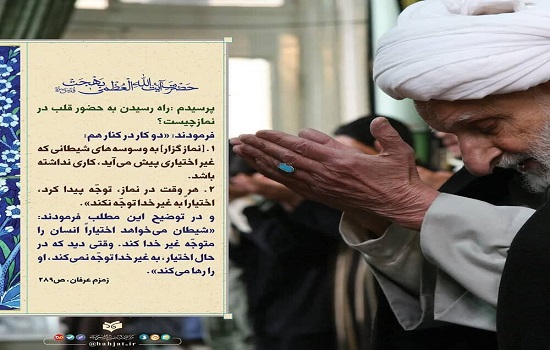 حضرت آیت الله العظمی بهجت
پرسیدم: راه رسیدن به حضور قلب در
نماز چیست؟
فرمودند: «دو کار در کنار هم:
۱. [نمازگزار] به وسوسه‌های شیطانی که
غیر اختیاری پیش می‌آید، کاری نداشته
باشد.
۲. هر وقت در نماز، توجّه پیدا کرد،
اختیاراً به غیر خدا توجّه نکند».
و در توضیح این مطلب فرمودند:
«شیطان می‌خواهد اختیاراً انسان را
متوجّه غیر خدا کند. وقتی دید که در
حال اختیار، به غیر خدا توجّه نمی‌کند، او
را رها می‌کند».
زمزم عرفان، ص۲۸۹
@bahjat.ir